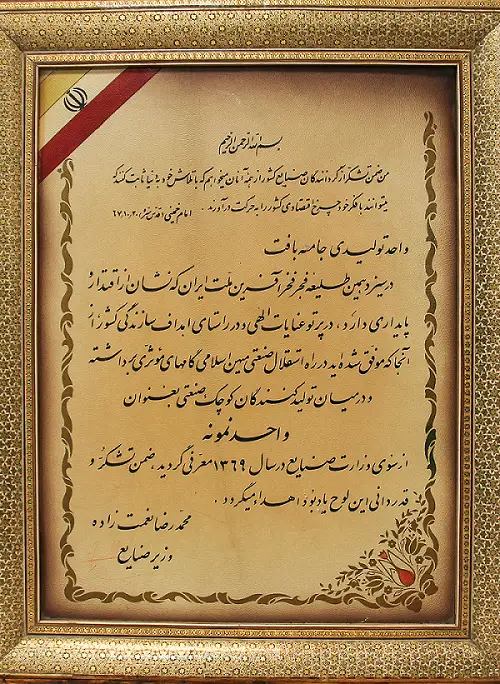 بسم الله الرحمن الرحیم
من ضمن تشکر از گردانندگان صنایع کشور از همهٔ آنان میخواهم که با تلاش خود به دنیا ثابت کنند که
میتوانند با فکر خود چرخ اقتصادی کشور را به حرکت درآورند . امام خمینی (قدس سره) ۶۷،۱۰،۲۰
واحد تولیدی جامه بافت
در سیزدهمین طلیعه فجر فخرآفرین ملت ایران که نشان از اقتدار و
پایداری دارد ، در پرتو عنایات الهی و در راستای اهداف سازندگی کشور از
آنجا که موفق شده اید در راه استقلال صنعتی میهن اسلامی گامهای مؤثری برداشته
و در میان تولید کنندگان کوچک صنعتی بعنوان
واحد نمونه
از سوی وزارت صنایع در سال ۱۳۶۹ معرفی گردید ، ضمن تشکر و
قدردانی این لوح یادبود اهداء میگردد .
محمدرضا نعمت زاده
وزیر صنایع